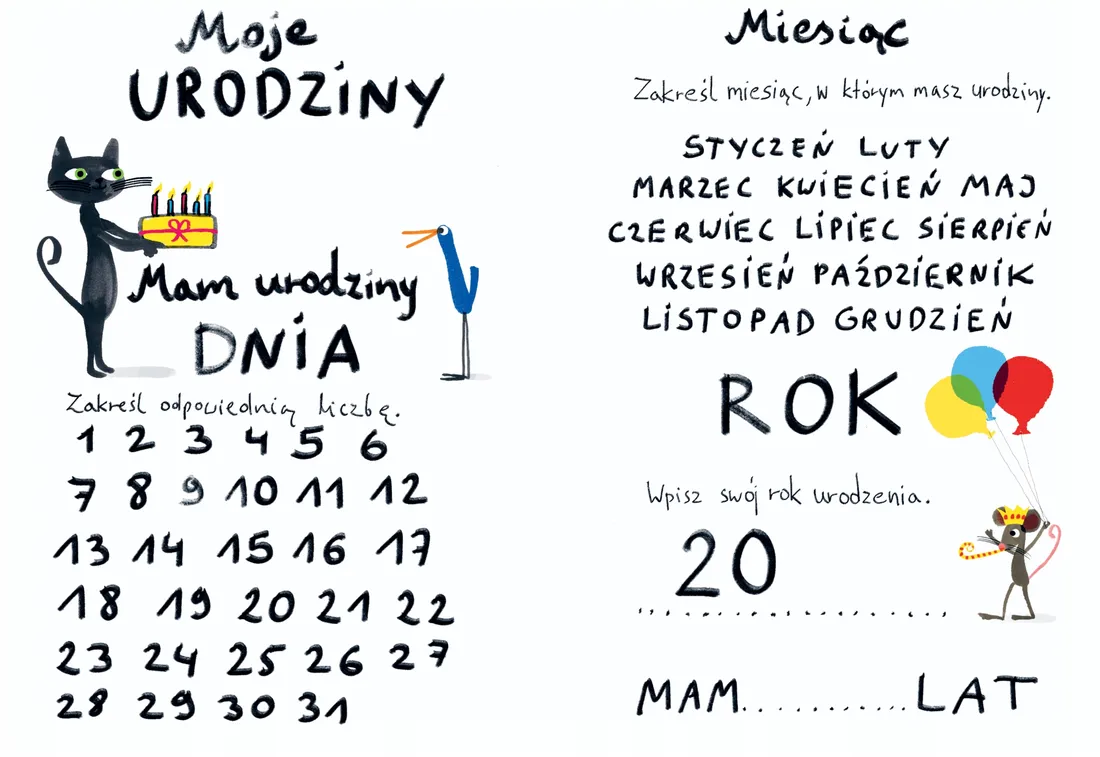 Moje
URODZINY
Mam urodziny
DNIA
Zakreśl odpowiednią liczbę.
1 2 3 4 5 6
7 8 9 10 11 12
13 14 15 16 17
18 19 20 21 22
23 24 25 26 27
28 29 30 31
Miesiąc
Zakreśl miesiąc, w którym masz urodziny.
STYCZEŃ LUTY
MARZEC KWIECIEŃ MAJ
CZERWIEC LIPIEC SIERPIEŃ
WRZESIEŃ PAŹDZIERNIK
LISTOPAD GRUDZIEŃ
ROK
Wpisz swój rok urodzenia.
20
MAM...........LAT